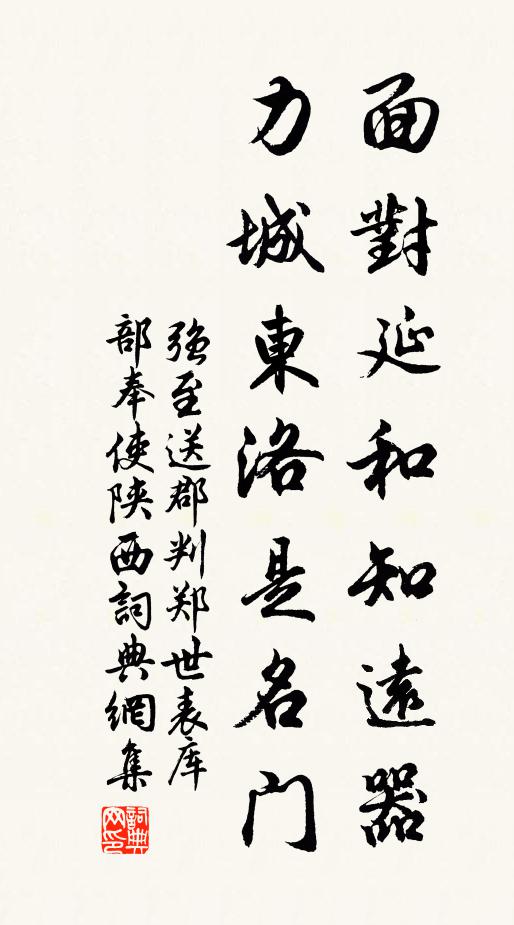 面對延和知遠器
力城東洛是名門
強至送郡判郑世表库
部奉使陝西詞典網集
詞典网印